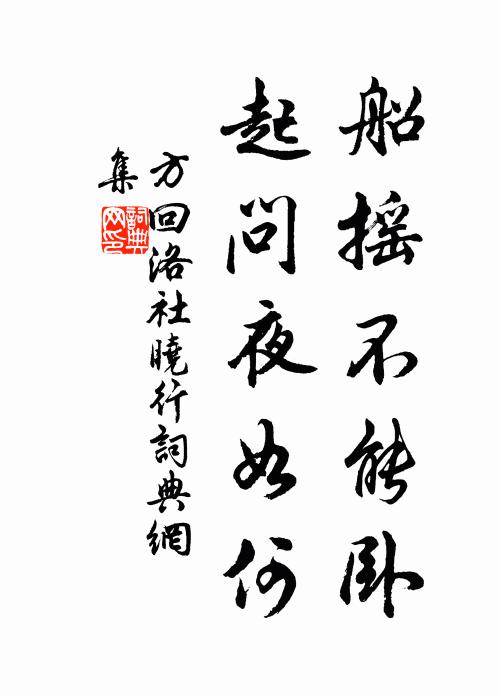 船摇不能卧
起問夜如何
方回洛社曉行詞典網
集
詞典网印